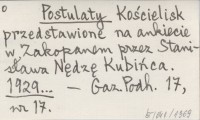 Postulaty Kościelisk
przedstawione na ankiecie
w Zakopanem przez Stani-
sława Nędzę Kubińca.
1929... — Gaz. Podh. 17,
nr 17.